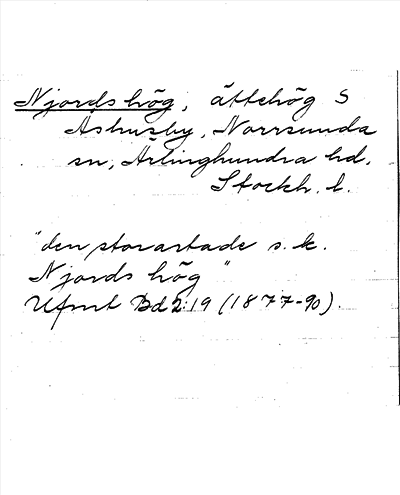 Njords hög, ättehög S
Åshusby, Norrsunda
sn, Ärlinghundra hd.
Stockh. l.
"den storartade s.k.
Njords hög"
Ufmt Bd 2:19 (1877-90).